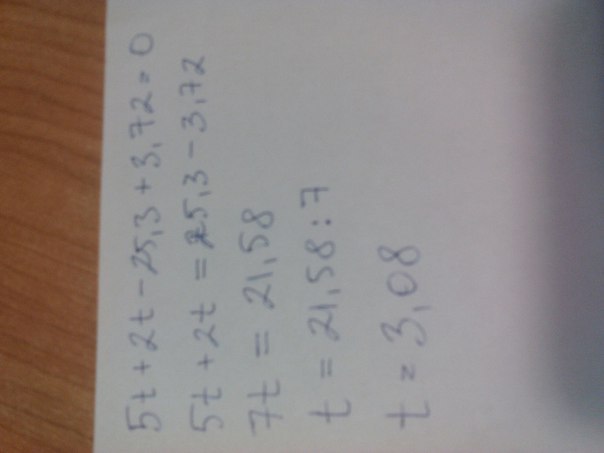 5t+2t-25,3+3,72=0
5t+2t=25,3-3,72
7t=21,58
t=21,58:7
t=3,08